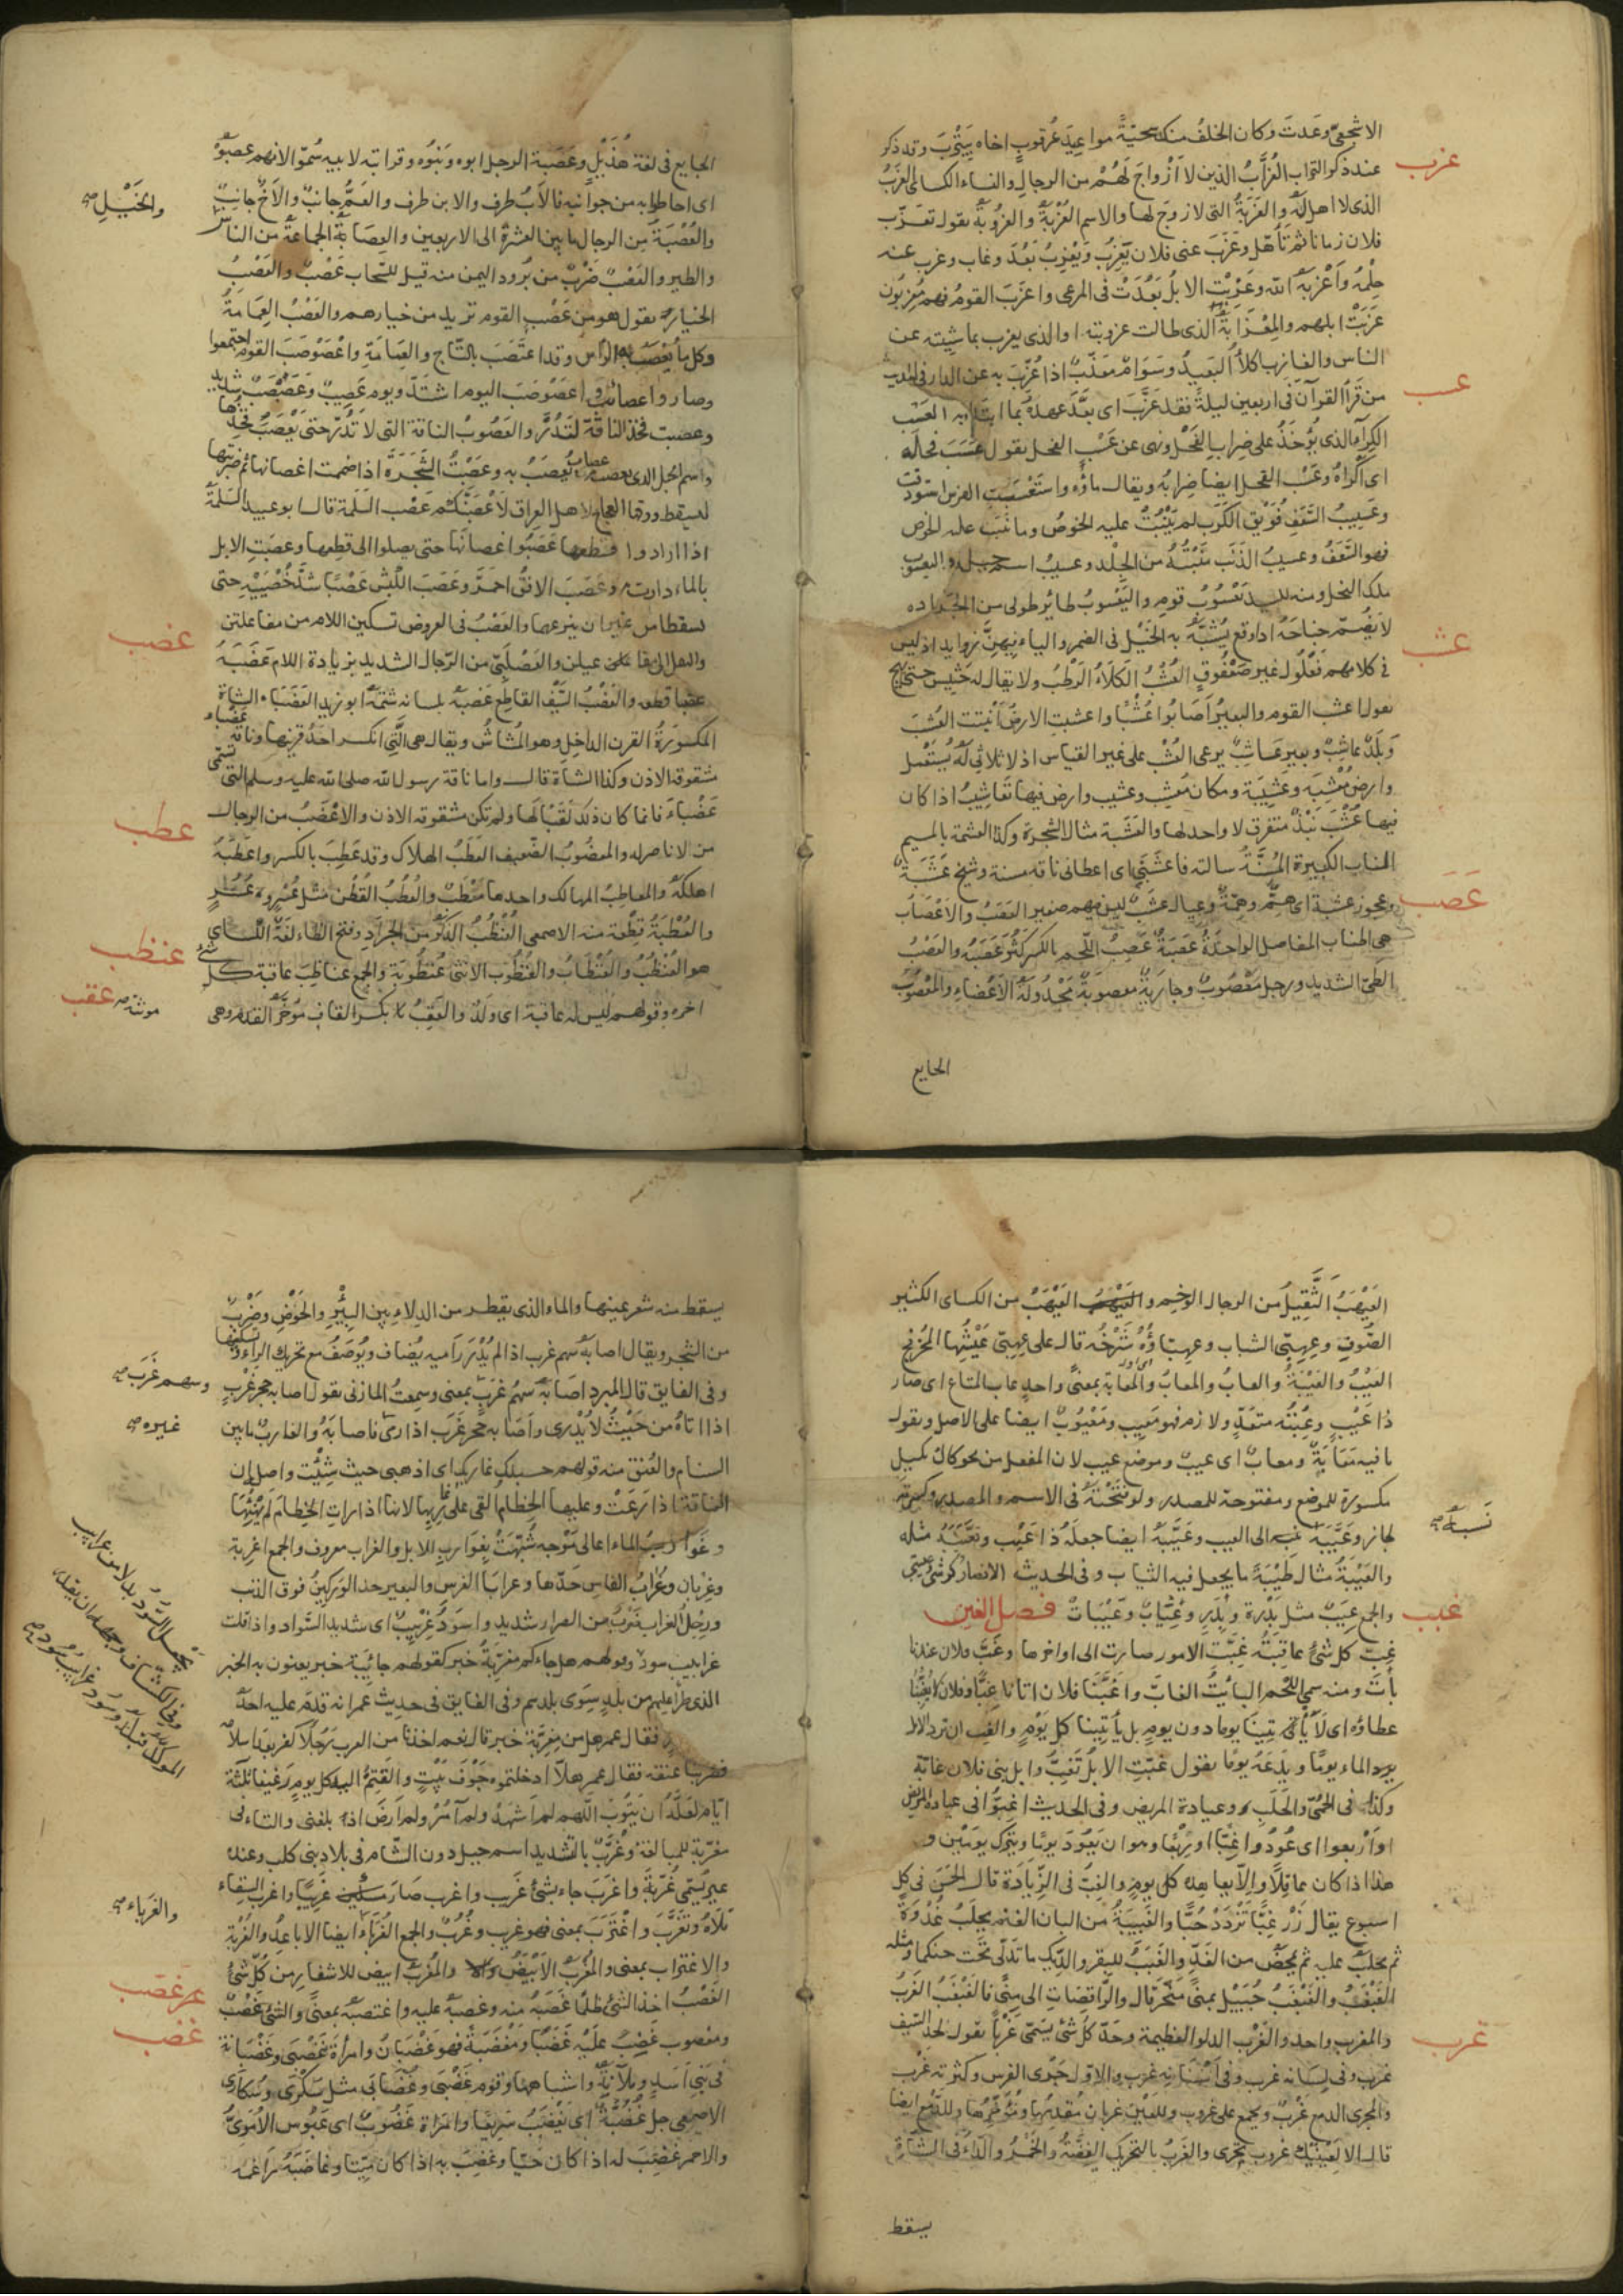 الاشجعىّ وعَدتَ وكان الخلفُ منك سجيّةً مواعيدَ عُرقوبٍ اخاه بِيَتْرَبَ وقد ذكر
عزب
عند ذكر التراب العُزّابُ الذين لا اَزْواجَ لَهُمْ من الرجالِ والنساء الكسائى العَزَبُ
الذى لا اهل له والعَزَبَةُ التى لا زوجَ لها والاسم العُزْبَةُ والعزُوبَةُ يقول تعَزّب
فلان زمانا ثم تأهّل وعَزَبَ عنى فلان يَعْزِبُ ويَعْزُبُ بَعُدَ وغاب وعزب عنه
حِلْمُهُ وَأَعْزبهُ الله وعَزَبَتِ الابلُ بَعُدَتْ فى المرعى واعزَبَ القومُ فهم مُعزِبُون
عزَبَتْ ابلهم والمِعْزَابةُ الذى طالت عزوبته والذى يعزب بماشِيته عن
الناس والعازب الكلأُ البَعيدُ وسَوَامٌ معَزّبٌ اذا عُزّبَ به عن الدار فى الحديث
عسب
من قرأ القرآن فى اربعين ليلةً فقد عَزَّبَ اى بعّد عهدهُ بما ابتدأ به العَسْب
الكِرآء الذى يُؤخَذُ على ضِراب الفَحْل ونهى عن عَسْبِ الفحل يقول عسَبَ فحله
اى أكْراهُ وعَسْب الفحل ايضا ضِرابُه ويقال ماؤُه واستَعْسَبَتِ الفرس استودقت
وعَسِيبُ السَّعَفِ فُوَيْقَ الكَرَب لم يَنْبُتْ عليه الخوصُ وما نبت عليه الخوص
فهو السَّعَفُ وعسيبُ الذَنَب مَنْبِتُهُ من الجِلْد وعسيبُ اسم جبل واليعسوب
ملك النحل ومنه للسيد يَعْسُوبُ قومه واليَعْسوبُ طائر اطول من الجرادة
عشب
لا يَضُمّ جناحَهُ اذا وقع يُشَبَّهُ به الخَيْل فى الضمر والياء فيهنّ زوايد اذ ليس
فى كلامهم فَعْلُول غير صَعْفُوقٍ العُشْبُ الكَلَأُ الرَطْبُ ولا يقال له حَشِيش حتى يهيج
يقول اعشب القوم والبعيرُ اَصَابُوا عُشْبًا واعشبتِ الارضُ اَنْبتت العُشب
وبَلَدٌ عاشِبٌ وبعير عَاشِبٌ يرعى العُشْب على غير القياس اذ لا ثلاثى له يُستَعْمل
وارضٌ مُعْشِبَة وعَشِيبَة ومكان مُعشِب وعشيب وارض فيها تعَاشِيبُ اذا كان
فيها عُشْبٌ نَبْذٌ متفرق لا واحد لها والعَشَبَة مثال الشجرة وكذا العشمة بالميم
الناب الكبيرة المُسِنَّةُ سالته فاعشَبَنِى اى اعطانى ناقه مسنة وشيخ عَشَبَةٌ
عَصَب
وعجوز عشبة اى هِمّ وهِمّة وعيال عَشَبٌ ليس فيهم صغير العَصَبُ والاَعْصَابُ
هى اطناب المفاصل الواحدَةُ عَصَبَةٌ عَصِبُ اللّحم بالكسر كَثُرَ عَصَبُهُ والعَصْبُ
الطىّ الشديد ورجل مَعْصُوبٌ وجاريَةٌ معصوبَة مَجْدُولَةُ الاَعْضاءِ والمَعْصُوبُ
الجايع
الجايع فى لغة هُذَيْل وعَصَبة الرجل ابوه وبَنُوه وقرابته لابيه سُمّوا لانهم عصبوُه
اى احاطوا به من جوانبه فالأَبُ طرف والابن طرف والعَمُّ جانبٌ والاَخُ جانِبٌ
والخَيْلِ صح
والعُصْبَة مِن الرجال ما بين العشرة الى الاربعين والعِصَابَةُ الجماعَةُ من الناس
والطير والعَصْبُ ضَرْبٌ من بُرود اليمن منه قيل للسّحاب عَصْبٌ والعَصْبُ
الخيار يقول هو من عَصْبِ القوم تريد من خيارهم والعَصْبُ العِمَامَةُ
وكل ما يُعْصَبُ به الرّأس وقد اعتَصَبَ بالتّاج والعِمَامَةِ واعْصَوْصَبَ القوم اجتمعوا
وصاروا عصائب واعصَوصَبَ اليوم اشتَدّ ويوم عَصِيبٌ وعَصَبْصَبٌ شديد
وعصبت فخذ الناقَةَ لتَدُرَّ والعَصُوبُ الناقة التى لا تَدُرّ حتى يُعْصَبَ فخذها
واسم الحبل الذى تعصب به عصاب وعَصَبْتُ الشَّجَرَةَ اذا ضممت اغصانها ثم ضربتها
ليسقط ورقها العجاج لاهل العِراق لَأَعْصِبَنَّكُم عَصْبَ السَلَمة قال ابو عبيد السَلَمَةُ
اذا ارادوا قطعها عَصَبُوا اغصانَها حتى يصلوا الى قطعها وعصَبَتِ الابل
بالماء دارت به وعَصَبَ الافقُ احمَرَّ وعَصَبَ الكَبْشَ عَصْبًا شَدَّ خُصْيَيْهِ حتى
غضب
تسقطا من غير ان ينزعهما والعَصْبُ فى العروض تسكين اللام من مفاعلتن
والعَصْلَبِىّ من الرّجال الشديد بزيادة اللام عَضَبَهُ
عضبا قطعه والعَضْبُ السَّيْف القاطِع عَضَبَهُ بلسانه شتَمَهُ ابو زيد العَضْبَاءُ الشاة
المكسورَةُ القرن الداخِل وهو المُشاشُ ويقال هى الَّتِى انكسر احدُ قرنيها وناقة عضباء
مشقوقة الاذن وكذا الشاة قال واما ناقة رسول الله صلى الله عليه وسلم التى تسمّى
عطب
عَضْبَاءَ فانما كان ذلك لَقَبًا لَها ولم تكن مشقوقه الاذن والاعْضَبُ من الرجال
من لا ناصر له والمعضُوبُ الضّعيف العَطَبُ الهلاك وقد عَطِبَ بالكسر واعطَبَهُ
اهلكهُ والمعاطِبُ المهالك واحدها مَعْطَبٌ والعُطْبُ القُطُن مثل عُسْرٍ وعُسُرٍ
عنظب
والعُطْبَةُ قِطْعَة منه الاصمعى العُنْظُبُ الذَكَرُ من الجَرَادِ وفتح الظاء لغة الكسائى
هو العُنْظُبُ والعُنْظَابُ والعُنْظُوب الانثى عُنظُوبَة والجمع عناظِبَ عاقبة كلّ شئ
عقب
مونثة صح
اخره وقولهم ليس له عاقبة اى وَلَدٌ والعَقِبُ بكسر القاف مُؤخّر القدم وهى
العَيْهَبُ الثَّقِيلُ من الرجال الوخيم والعَيْهَبُ من الكساى الكثير
الصُّوفِ وعِهِبّى الشباب وعِهِبّاؤُهُ شَرْخُه قال على عِهِبّى عَيْشها المُخرفج
العَيْبُ والعَيْبَةُ والعابُ والمعابُ والمَعابَة بمعنًى واحدٍ عاب المتاع اى صار
ذا عَيْبٍ وعِبْتُه متعَدٍّ ولازم فهو مَعِيب ومَعْيُوبٌ ايضا على الاصل ويقول
ما فيه مَعَابَةٌ ومعابٌ اى عيبٌ وموضع عيب لان المفعل من نحو كال يكيل
مكسورة للموضع ومفتوحة للمصدر ولو فتحْتَهُ فى الاسم والمصدر وكسرته
نَسبَهُ صح
لجاز وعَيَّبَهُ الى العيب وعَيَّبَهُ ايضا جعلهُ ذا عَيْب وتعَيَّبَهُ مثله
والعَيْبَةُ مثال طَيْبَةَ ما يجعل فيه الثياب وفى الحديث الانصار كرشى وعيبتى
غبب
والجمع عِيَبٌ مثل بَدْرة وبِدَر وعِيَابٌ وعَيْبَاتٌ فصل الغين
غِبُّ كل شئ عاقِبَتُه غبَّتِ الامور صارت الى اواخرها وغَبَّ فلان عندنا
بَاتَ ومنه سمى اللحم البائتُ الغابَّ واغَبَّنا فلان اتانا غِبًّا وفلان لا يُغِبُّنا
عطاؤه اى لَا يأْتِينَا يوما دون يومٍ بل يأتينا كل يَوْمٍ والغِب ان ترد الابل
يرد الماء يومًا ويَدَعَهُ يومًا يقول غَبّتِ الابلُ تَغِبُّ وابل بنى فلان غابّة
وكذا فى الحُمّى والحَلَب وعيادة المريض وفى الحديث اغِبُّوا فى عيادة المريض
او اَرْبعوا اى عُودُوا غِبًّا او رِبْعًا وهو ان يَعُودَ يومًا ويترك يومَيْن و
هذا اذا كان عاقِلًا والّا يعاهده كل يومٍ والغِبّ فى الزِّيَادَة قال الحَسَنُ فى كل
اسبوع يقال زُرْ غِبًّا تَزْدَدْ حُبًّا والغَبِيبَةُ من البان الغنم يحلَبُ غُدْوَةً
ثم يحلبُ عليه ثم يُمخَضُ من الغَدِ والغَبَبُ للبقر والدِّيك ما تدَلّى تَحْت حنكهما ومثله
الغَبْغَبُ والغَبْغَبُ جُبَيْل بمنًى مَنْحَر قال والرَّاقِصَاتِ الى مِنًى فالغَبْغَبِ الغَرْبُ
غرب
والمغرب واحد والغَرْب الدلو العظيمة وحَدّ كلّ شئ يسَمّى غَرْبًا يقول لحدّ السَّيف
غرب وفى لِسَانه غرب وفى اَسْنَانِه غرب والاوّل حَدُّ الفرس وكثرته غَرْب
والمجرى الدمع غَرْبٌ ويجمع على غروب وللعَيْنَ غربان مُقدِمُها ومُؤخِرُها وللدَّمع ايضا
قال الا لِعَيْنَيْك غروب تجرى والغَربُ بالتحريك الفِضَّةُ والخَمْرُ والدّاءُ فى الشَّاةِ
يسقط
يسقط منه شعر عينها والماء الذى يقطر من الدِلاءِ بين البِئْرِ والحَوْضِ وضَرْبٌ
من الشجر ويقال اصابهُ سهم غرب اذا لم يُدْرَ رَاميه يُضاف ويُوصَفُ مع تحريك الراء وتسكينها
وسهم غَرَب صح
وفى الفايق قال المبرد اصَابَهُ سهمُ غَرَبٍ بمعنى وسمعتُ المازنى يقول اصابه حجر غَرَبٍ
غيره صح
اذا اتاهُ من حَيْثُ لَا يَدْرى واَصَابه حجرُ غَرَبٍ اذا رمى فاصابَهُ والغاربُ ما بين
السنام والعُنق منه قولهم حبلك على غاربك اى اذهبى حيث شِئْتِ واصله ان
الناقة اذا رَعَتْ وعليها الخِطامُ القى على غاربها لانها اذا رات الخِطامَ لم يُهْنِئْهَا
وغوارب الماء اعالى مَوْجه شُبّهَتْ بِغوَارب الابل والغراب معروف والجمع اغرِبة
وغِربان وغُرابُ الفاس حَدّها وغرابَا الفرس والبعير حد الوَرِكينِ فوق الذنب
ورِجْلُ الغراب ضَرْبٌ من الصرار شديد واسوَدُ غِرْبِيبٌ اى شديد السَّواد واذا قلت
يجعل السُّودُ بدلا من غرابيب
وفى الكشّاف وجهه ان يقدر
الموكَّد قبله وَسُود غَرَابيبُ سُود صح
غرابيب سودٌ وقولهم هل جاءكم مغرّبةُ خبر كقولهم جائِبة خبر يعنون به الخبر
الذى طرأ عليهم من بلدٍ سِوَى بلدهم وفى الفايق فى حديث عمر انه قدم عليه احدٌ
فقال عمر هل من مغرّبَة خبر قال نعم اخذنا من العرب رَجُلًا كفر بعد اسلام
فضربنا عنقه فقال عمر هلّا ادخلتموه جَوْفَ بَيْتٍ والقَيتم اليه كل يوم رَغِيفًا ثلثة
ايّام لعَلَّهُ ان يتُوبَ اللّهم لم اَشهَدْ ولم آمُرْ ولم اَرْضَ اذ بلغنى والتاء فى
مغرّبة للمبالغة وغُرَّبٌ بالتشديد اسم جبل دون الشّام فى بلاد بنى كلب وعنده
عين يُسَمّى غُرّبَةَ واَغرَبَ جاء بشئ غريب واغرب صَارَ غَرِيبًا واغرب السِقاء
والغَرباء صح
مَلَأهُ وتغَرَّبَ واغْتَرَبَ بمعنى فهو غريب وغُرُبٌ والجمع الغُرَباءُ ايضا الاباعِدُ والغُرْبَة
والاغتراب بمعنى والمُغْرَبُ الاَبْيَضُ والمُغْرَبُ ابيض الاشفار من كلّ شئ
غصب
الغَصْبُ اخذ الشئ ظلمًا غَصَبَهُ منه وغصبهُ عليه واغتصبَهُ بمعنًى والشئ غَصْبٌ
غضب
ومغصوب غَضِبَ علَيْه غَضَبًا ومَغْضَبَةً فهو غَضْبَانُ وامرأة غَضْبَى وغَضْبَانَة
فى بَنِى اَسَدٍ وملآنةٌ واشباههما وقوم غَضْبَى وغَضَابَى مثل سَكْرَى وسَكَارى
الاصمعى رجل غُضُبَّةٌ اى يَغْضَبُ سَرِيعًا وامْرَاة غَضُوبٌ اى عَبُوس الاُمَوِىُّ
والاحمر غَضِبَ له اذا كان حَيًّا وغضِبَ به اذا كان مَيّتا وغاضَبَهُ رَاغمه